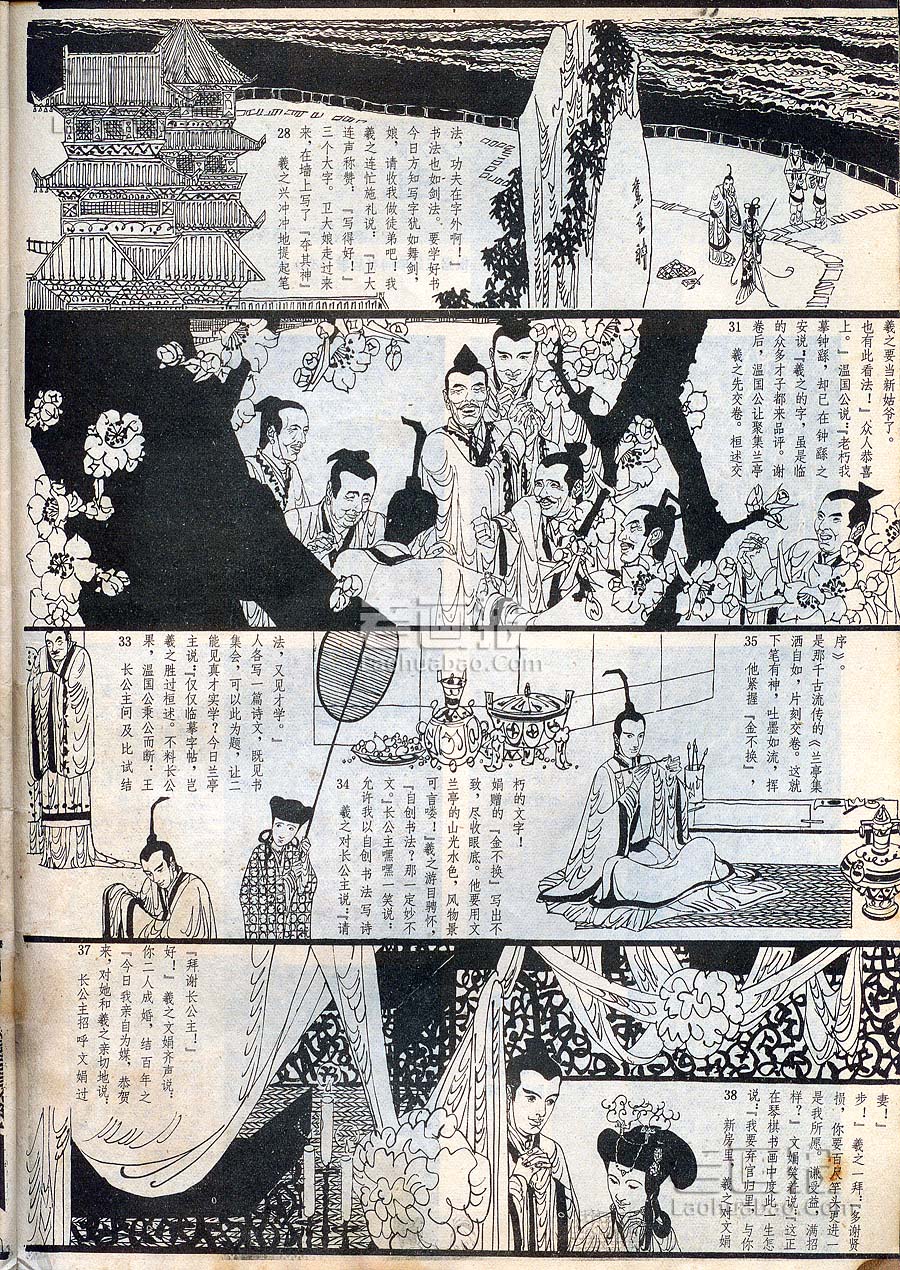 28 羲之兴冲冲地提起笔
来，在墙上写了『夺其神』
三个大字。卫大娘走过来
连声称赞：『写得好！』
羲之连忙施礼说：『卫大
娘，请收我做徒弟吧！我
今日方知写字犹如舞剑，
书法也如剑法。要学好书
法，功夫在字外啊！』
夺其神
31 羲之先交卷。桓述交
卷后，温国公让聚集兰亭
的众多才子都来品评。谢
安说：『羲之的字，虽是临
摹钟繇，却已在钟繇之
上。』温国公说：『老朽我
也有此看法！』众人恭喜
羲之要当新姑爷了。
33 长公主问及比试结
果，温国公秉公而断：王
羲之胜过桓述。不料长公
主说：『仅仅临摹字帖，岂
能见真才实学？今日兰亭
集会，可以此为题，让二
人各写一篇诗文，既见书
法，又见才学。』
34 羲之对长公主说：『请
允许我以自创书法写诗
文。』长公主嘿嘿一笑说：
『自创书法？那一定妙不
可言喽！』羲之游目骋怀，
兰亭的山光水色，风物景
致，尽收眼底。他要用文
娟赠的『金不换』写出不
朽的文字！
35 他紧握『金不换』，
下笔有神，吐墨如流，挥
洒自如，片刻交卷。这就
是那千古流传的《兰亭集
序》。
37 长公主招呼文娟过
来，对她和羲之亲切地说：
『今日我亲自为媒，恭贺
你二人成婚，结百年之
好！』羲之文娟齐声说：
『拜谢长公主！』
38 新房里，羲之对文娟
说：『我要弃官归里，与你
在琴棋书画中度此一生怎
样？』文娟笑着说：『这正
是我所愿。谦受益，满招
损，你要百尺竿头更进一
步！』羲之一拜：『多谢贤
妻！』
老画报
Laohuabao.Com
老画报
Laohuabao.Com